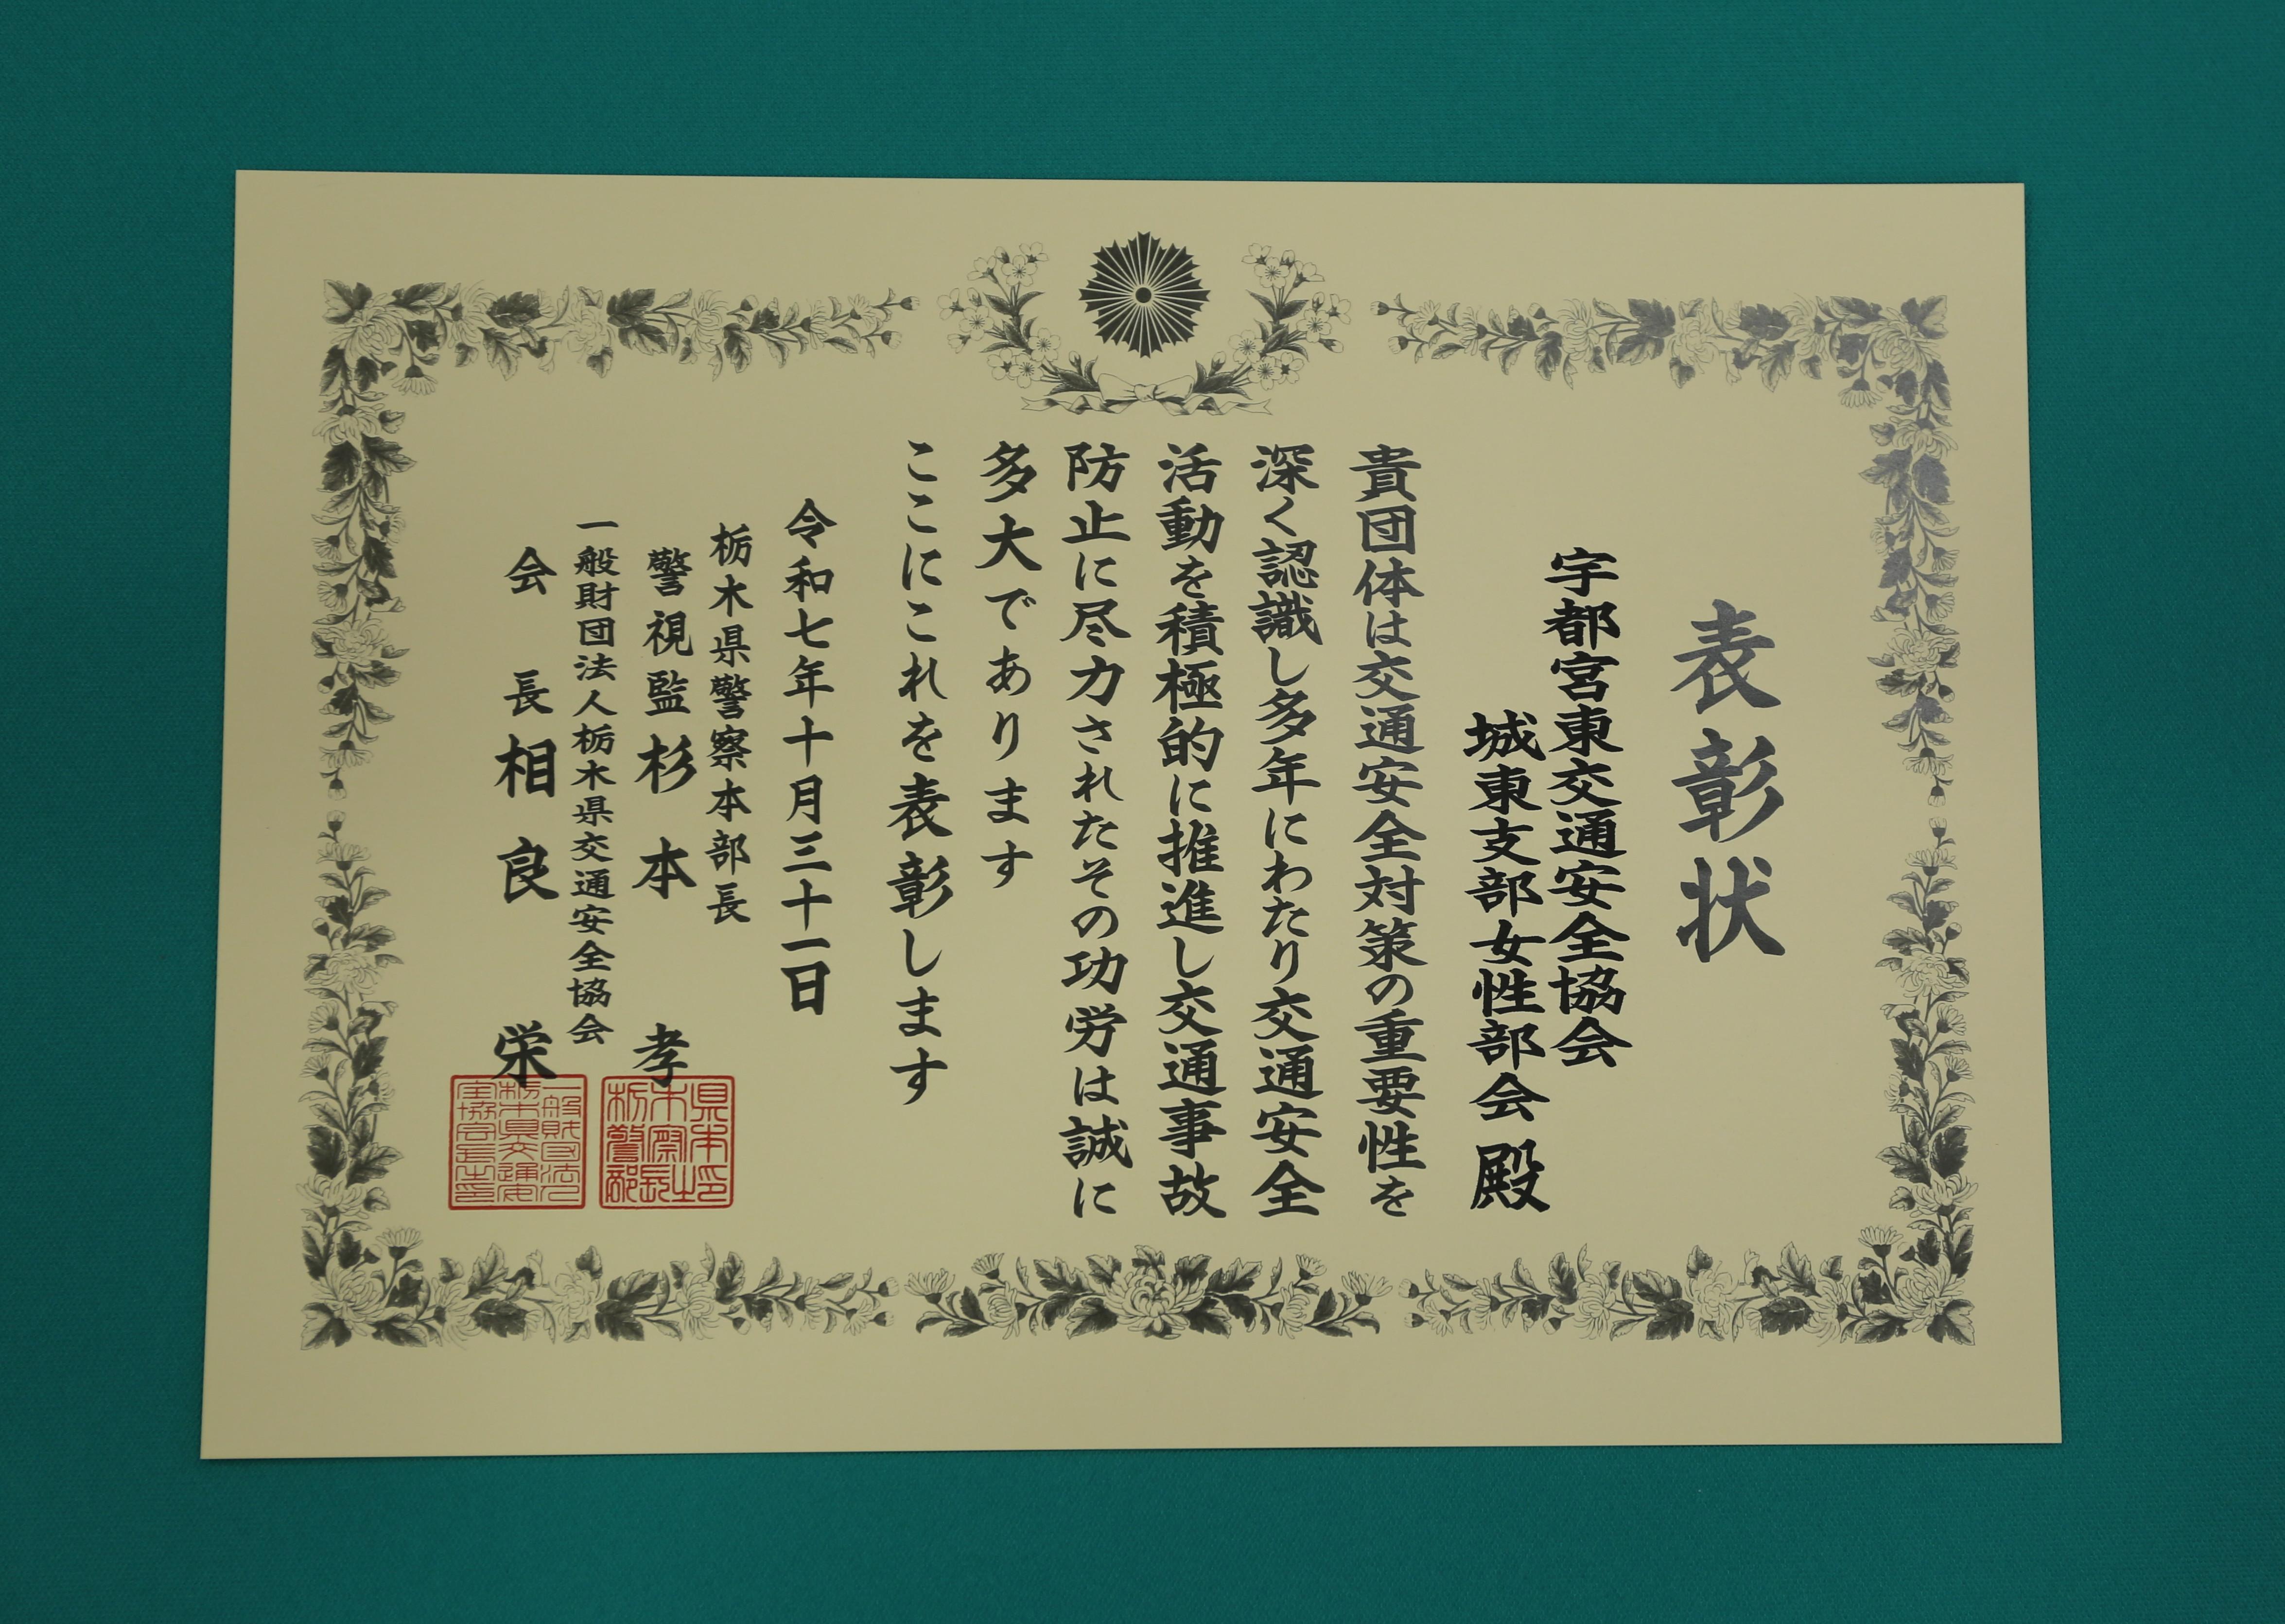 表彰状
宇都宮東交通安全協会
城東支部女性部会 殿
貴団体は交通安全対策の重要性を
深く認識し多年にわたり交通安全
活動を積極的に推進し交通事故
防止に尽力されたその功労は誠に
多大であります
ここにこれを表彰します
令和七年十月三十一日
栃木県警察本部長
警視監 杉本 孝
一般財団法人栃木県交通安全協会
会長 相良 栄